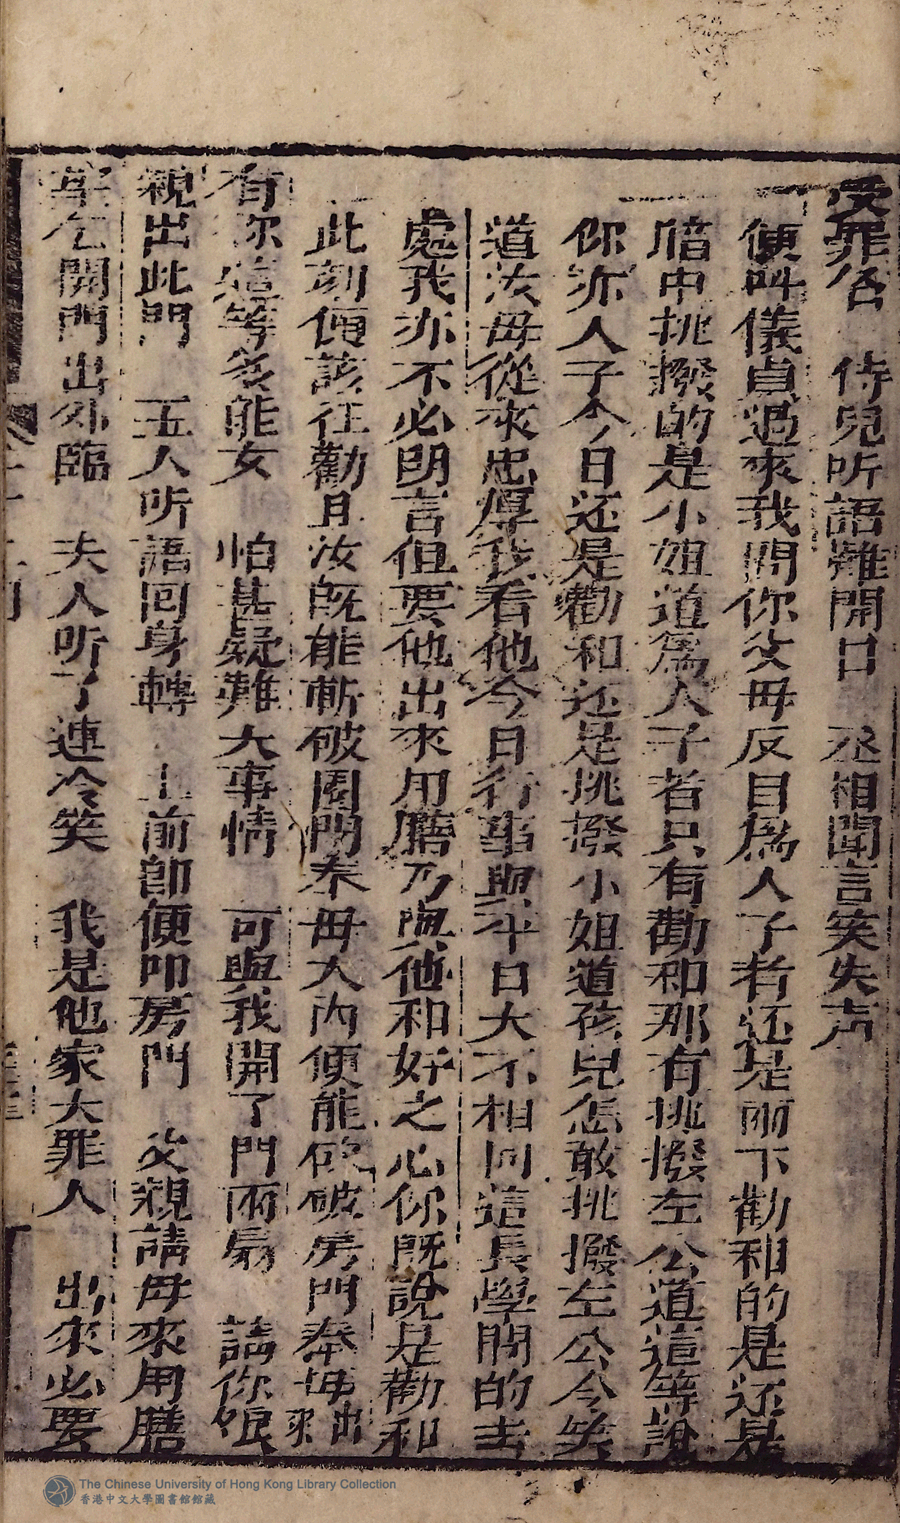 受罪名　侍兒听語難開口　丞相聞言笑失声
便叫儀貞過來我問你父母反目爲人子者还是兩下勸和的是还是
暗中挑撥的是小姐道爲人子者只有勸和那有挑撥左公道這等說
你亦人子今日还是勸和还是挑撥小姐道孩兒怎敢挑撥左公今笑
道汝母從來忠厚我看他今日行事與平日大不相同這長學問的去
處我亦不必明言但要他出來用膳乃與他和好之心你既說是勸和
此刻便該往勸且汝既能斬破園門奉母入內便能砍破房門奉母出來
有你這等多能女　怕甚疑難大事情　可與我開了門兩扇　請你娘
親出此門　玉人听語回身轉　上前卽便叩房門　父親請母來用膳
開門出外臨　夫人听了連冷笑　我是他家大罪人　出來必要
The Chinese University of Hong Kong Library Collection
香港中文大學圖書館館藏